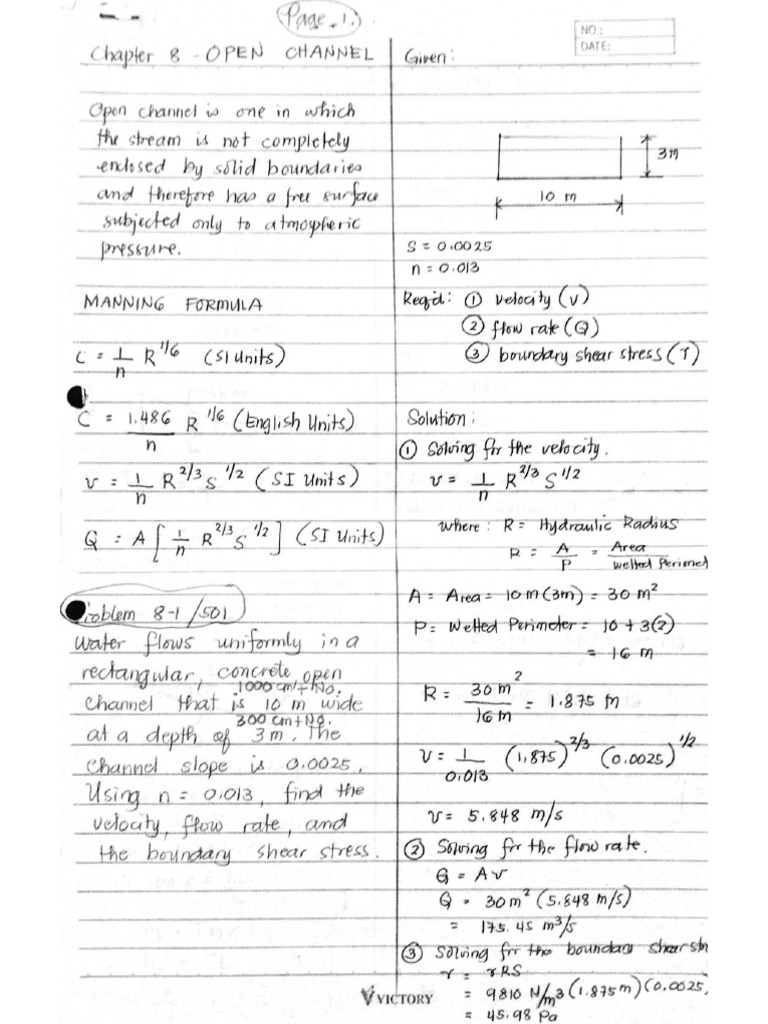 Page 1.
NO.:
DATE:
Chapter 8 - OPEN CHANNEL
Open channel is one in which
the stream is not completely
enclosed by solid boundaries
and therefore has a free surface
subjected only to atmospheric
pressure.
MANNING FORMULA
C = 1/n R^1/6 (SI Units)
C = 1.486/n R^1/6 (English Units)
v = 1/n R^2/3 S^1/2 (SI Units)
Q = A [1/n R^2/3 S^1/2] (SI Units)
Problem 8-1/501
Water flows uniformly in a
rectangular, concrete, open
1000 cm + No.
channel that is 10 m wide
300 cm + No.
at a depth of 3m. The
channel slope is 0.0025.
Using n = 0.013, find the
velocity, flow rate, and
the boundary shear stress.
Given:
3m
10 m
S = 0.0025
n = 0.013
Req'd: ① velocity (v)
② flow rate (Q)
③ boundary shear stress (τ)
Solution:
① Solving for the velocity.
v = 1/n R^2/3 S^1/2
where: R = Hydraulic Radius
R = A/P = Area/Wetted Perimet
A = Area = 10 m (3m) = 30 m²
P = Wetted Perimeter = 10 + 3(2)
= 16 m
R = 30 m²/16 m = 1.875 m
v = 1/0.013 (1.875)^2/3 (0.0025)^1/2
v = 5.848 m/s
② Solving for the flow rate.
Q = Av
Q = 30 m² (5.848 m/s)
= 175.45 m³/s
③ Solving for the boundary shear str
τ = γRS
= 9810 N/m³ (1.875 m) (0.0025)
= 45.98 Pa
VICTORY